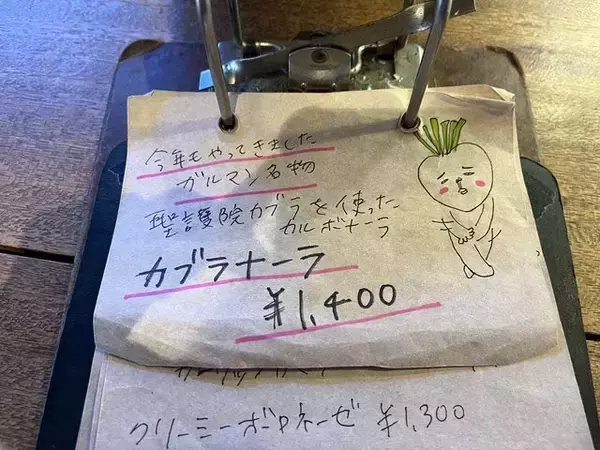 今年もやってきました
ガルマン名物
聖護院カブラを使った
カルボナーラ
カブラナーラ
¥1,400
クリーミーボロネーゼ ¥1,300